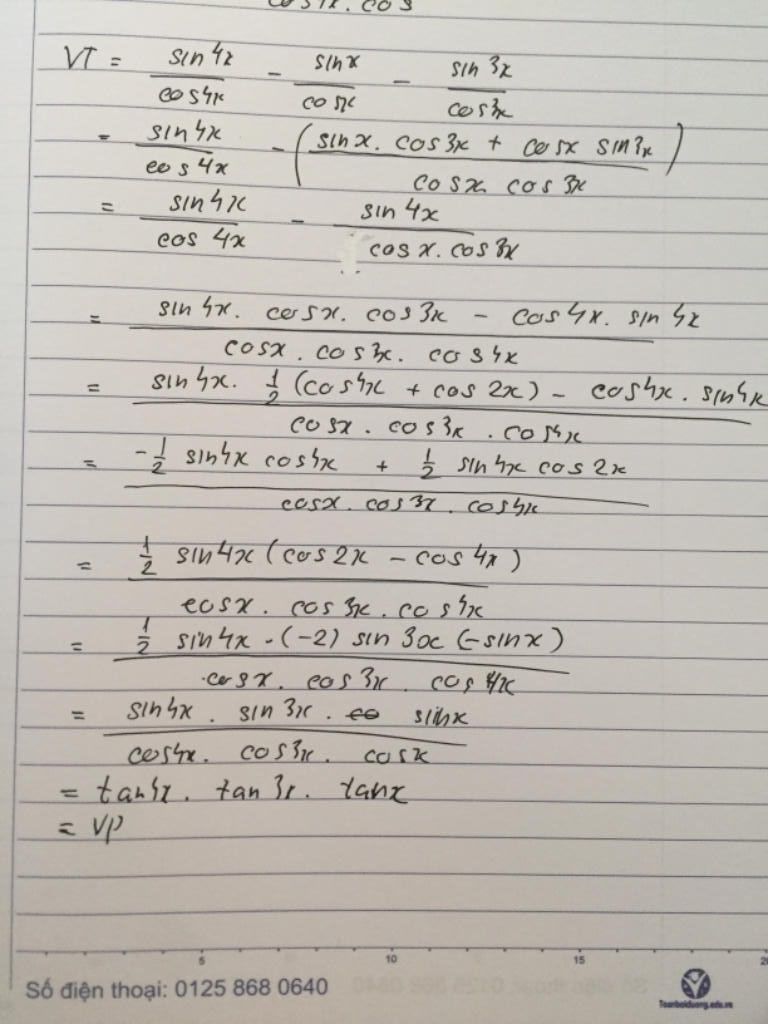 cos4x. cos
VT = sin4x/cos4x - sinx/cosx - sin3x/cos3x
= sin4x/cos4x - (sinx. cos3x + cosx sin3x/cosx cos3x)
= sin4x/cos4x - sin4x/cosx.cos3x
= sin4x. cosx. cos3x - cos4x. sin4x/cosx. cos3x. cos4x
= sin4x. 1/2 (cos4x + cos2x) - cos4x. sin4x/cosx. cos3x. cos4x
= -1/2 sin4x cos4x + 1/2 sin4x cos2x/cosx. cos3x. cos4x
= 1/2 sin4x (cos2x - cos4x)/cosx. cos3x. cos4x
= 1/2 sin4x. (-2) sin3x (-sinx)/cosx. cos3x. cos4x
= sin4x. sin3x. sinx/cos4x. cos3x. cosx
= tan4x. tan3x. tanx
= VP
5 10 15 20
Số điện thoại: 0125 868 0640
Toanboiduong.edu.vn